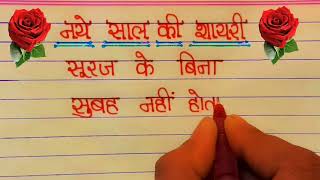 नये साल की शायरी
सूरज के बिना
सुबह नहीं होता